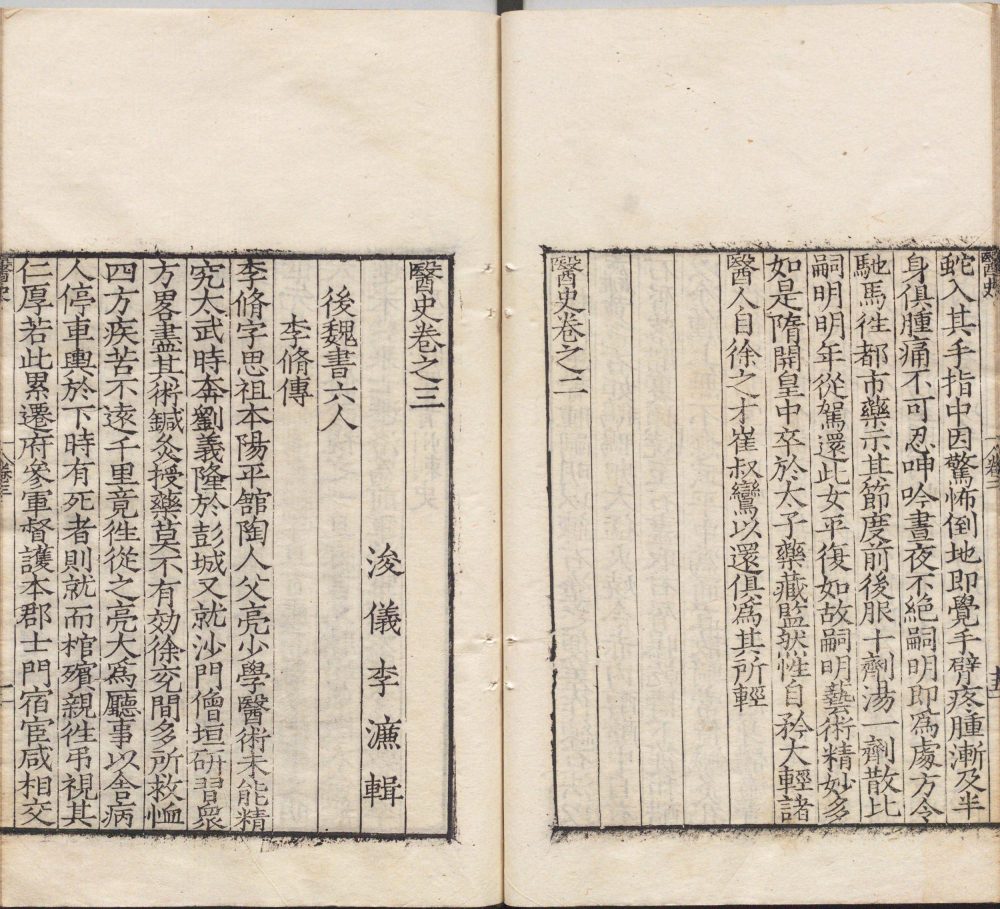 蛇入其手指中因驚怖倒地即覺手臂疼腫漸及半
身俱腫痛不可忍呻吟晝夜不絕嗣明即為處方令
馳馬徃都市藥示其節度前後服十劑湯一劑散比
嗣明明年從駕還此女平復如故嗣明藝術精妙多
如是隋開皇中卒於太子藥藏監狀性自矜大輕諸
醫人自徐之才崔叔鸞以還俱為其所輕
醫史卷之二
醫史卷之三
浚儀李濂輯
後魏書六人
李脩傳
李脩字思祖本陽平舘陶人父亮少學醫術未能精
究太武時奔劉義隆於彭城又就沙門僧垣研習衆
方畧盡其術鍼灸授藥莫不有効徐兖間多所救恤
四方疾苦不遠千里竟徃從之亮大為廳事以舎病
人停車輿於下時有死者則就而棺殯親徃吊視其
仁厚若此累遷府參軍督護本郡士門宿宦咸相交